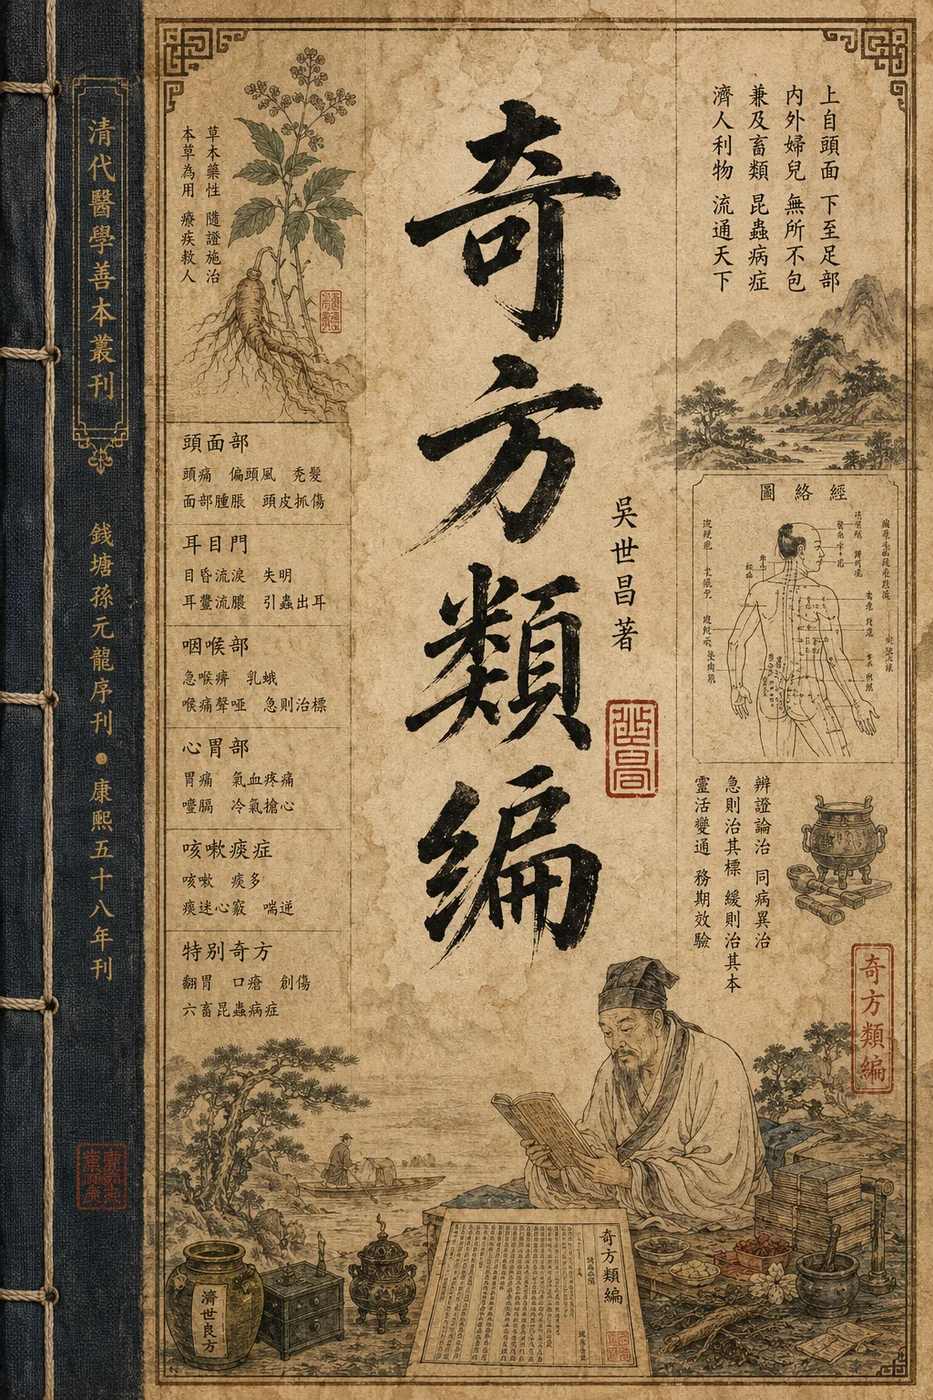 奇方類編
吳世昌著
清代醫學善本叢刊
錢塘孫元龍序刊•康熙五十八年刊
上自頭面 下至足部
內外婦兒 無所不包
兼及畜類 昆蟲病症
濟人利物 流通天下
草本藥性 隨證施治
本草為用 療疾救人
頭面部
頭痛 偏頭風 禿髮
面部腫脹 頭皮抓傷
耳目門
目昏流淚 失明
耳聾流膿 引蟲出耳
咽喉部
急喉痹 乳蛾
喉痛聲啞 急則治標
心胃部
胃痛 氣血疼痛
噎膈 冷氣搶心
咳嗽痰症
咳嗽 痰多
痰迷心竅 喘逆
特別奇方
翻胃 口瘡 創傷
六畜昆蟲病症
圖絡經
辨證論治 同病異治
急則治其標 緩則治其本
靈活變通 務期效驗
奇方類編
濟世良方
奇方類編